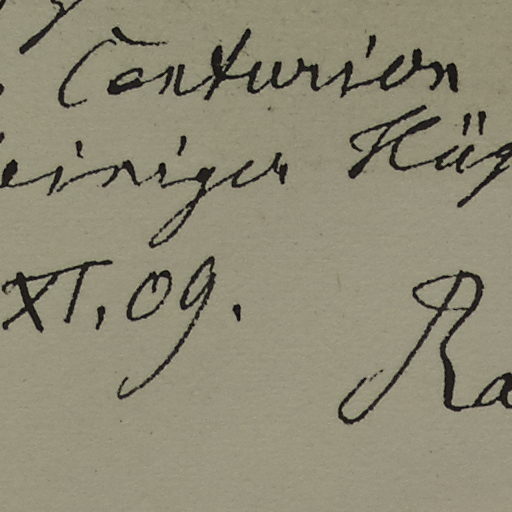 Centurion
einiger Hüg
XI. 09.
Ra